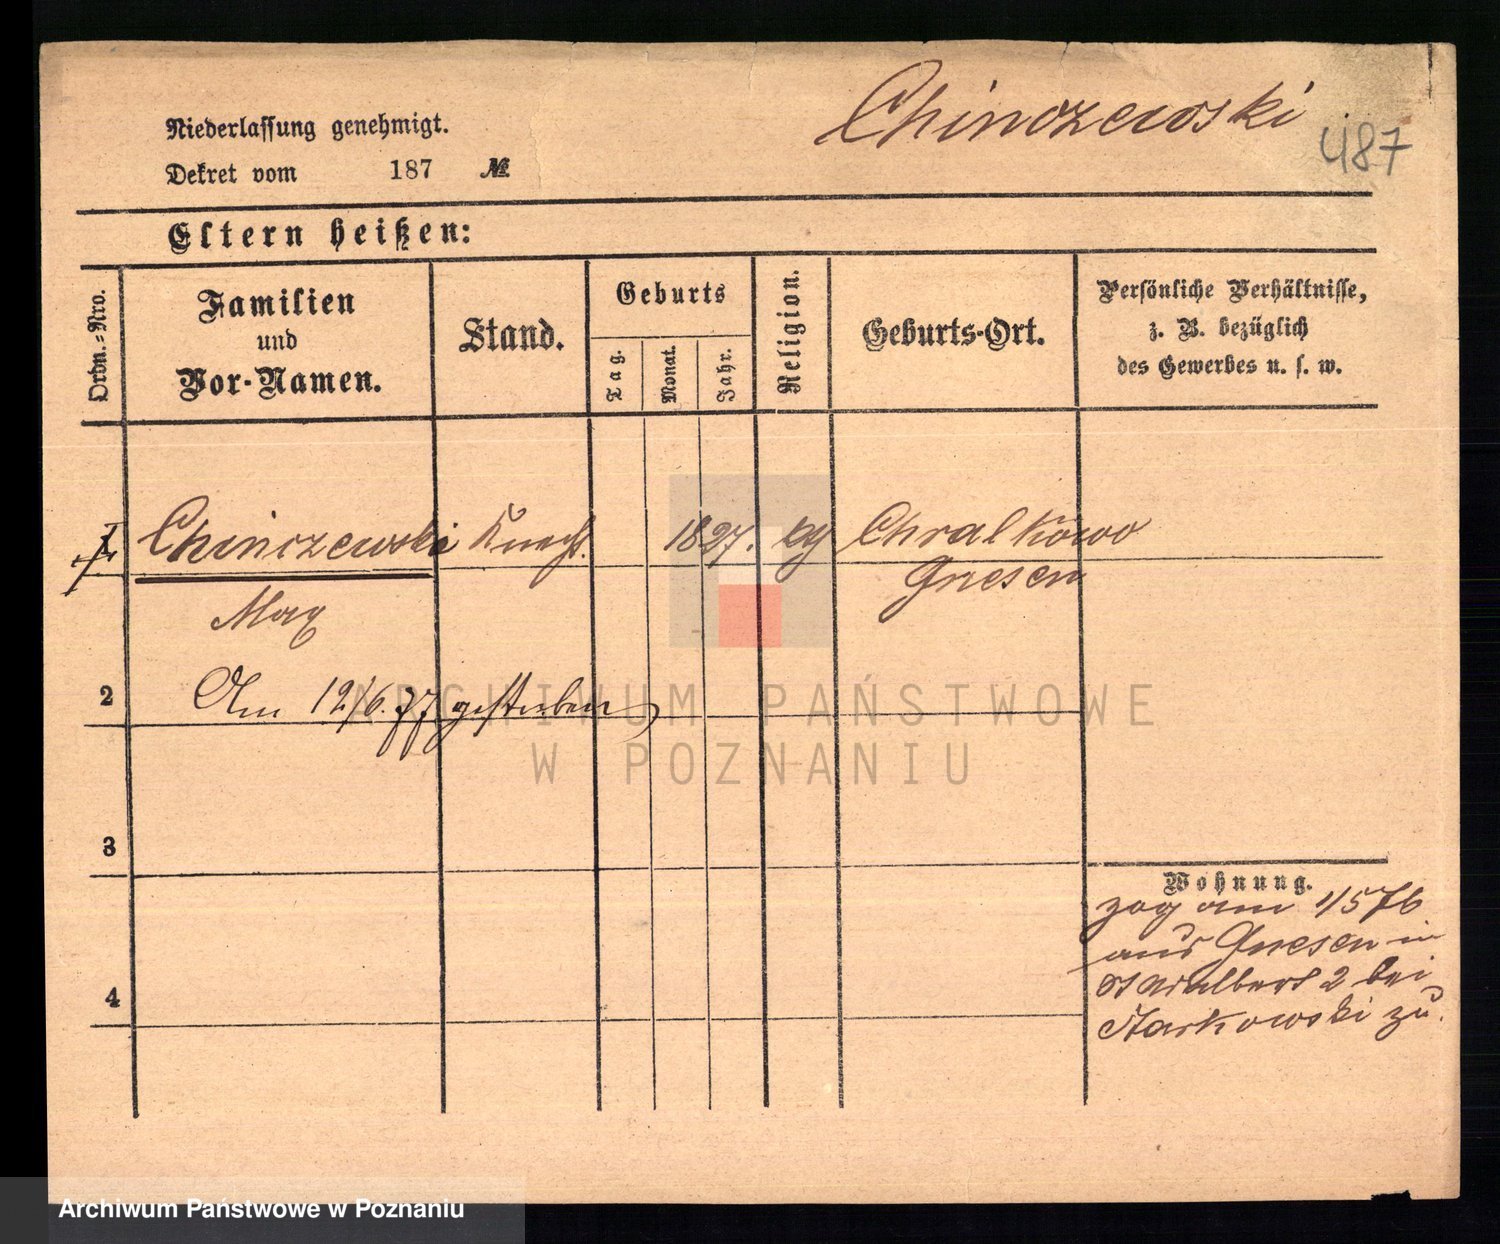 Chinczewski
487
Niederlassung genehmigt.
Dekret vom 187 №
Eltern heißen:
Ordn.-Nro.
Familien und Vor-Namen.
Stand.
Geburts
Tag.
Monat.
Jahr.
Religion.
Geburts-Ort.
Persönliche Verhältnisse,
z. B. bezüglich
des Gewerbes u. s. w.
1 Chinczewski Knecht. 1827. Chralkowo
Gnesen
Max
2 Am 12/6. 77 gestorben
3
4
Wohnung.
zog am 4/5 76
aus Gnesen in
St Adalbert 2 bei
Starkowski zu.
ARCHIWUM PAŃSTWOWE
W POZNANIU
Archiwum Państwowe w Poznaniu